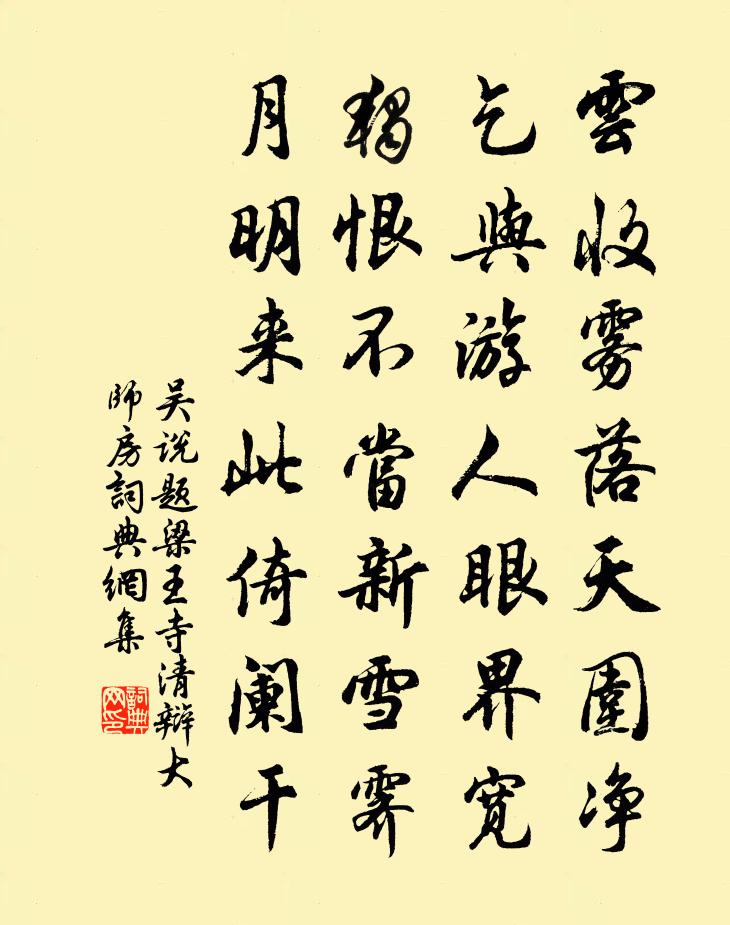 雲收雾落天圍净
乞與游人眼界寬
獨恨不當新雪霽
月明来此倚阑干
吴說题梁王寺清辯大
師房詞典網集
詞典网印